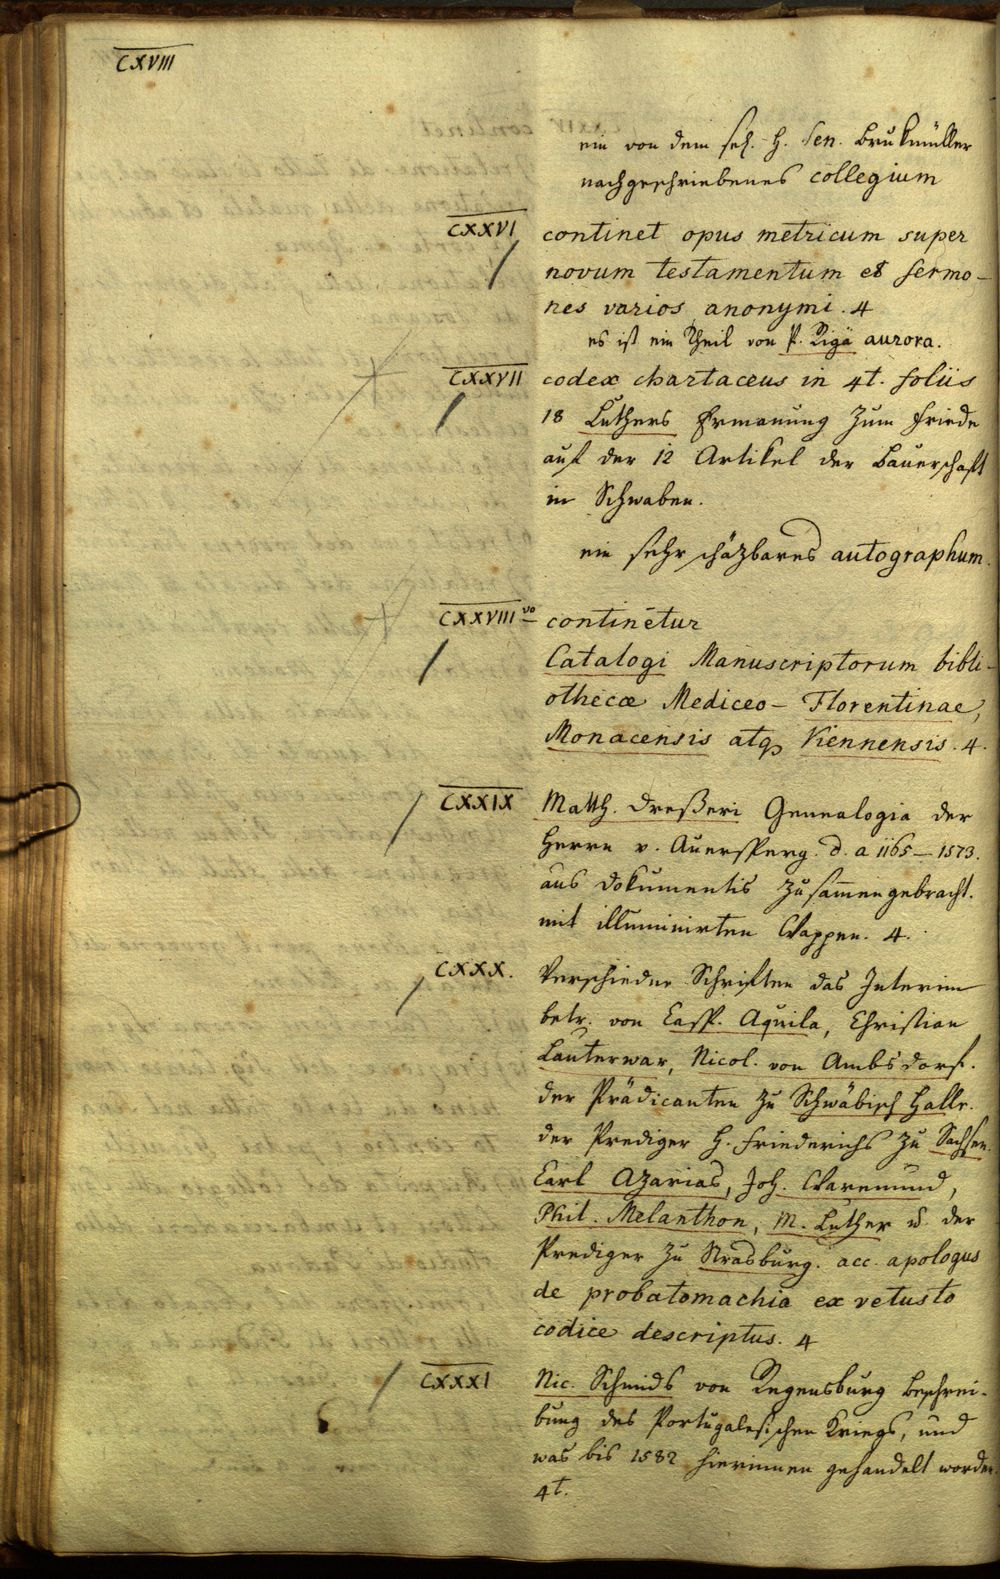 CXVIII
ein von dem sel. H. Sen. Brukmüller
nachgeschriebenes collegium
CXXVI continet opus metricum super
novum testamentum et sermo-
nes varios anonymi. 4
es ist ein Theil von P. Rigä aurora.
CXXVII codex chartaceus in 4t. foliis
18 Luthers Ermanung zum Friede
auf der 12 Artikel der Bauerschaft
in Schwaben.
ein sehr schäzbares autographum.
CXXVIII vo continetur
Catalogi Manuscriptorum bibli-
othecæ Mediceo-Florentinae,
Monacensis atq Viennensis. 4.
CXXIX Matth. Dreßeri Genealogia der
Herrn v. Auersperg. d. a 1165-1573.
aus dokumentis zusam̄engebracht.
mit illuminirten Wappen. 4.
CXXX. Verschiedne Schriften das Interim
betr. von Casp. Aquila, Christian
Lauterwar, Nicol. von Ambsdorf.
der Prädicanten zu Schwäbisch Halle.
der Prediger H. Friederichs zu Sachsen.
Carl Azarias, Joh. Waremund,
Phil. Melanthon, M. Luther u. der
Prediger zu Strasburg. acc. apologus
de probatomachia ex vetusto
codice descriptus. 4
CXXXI Nic. Schmids von Regensburg Beschrei-
bung des Portugalesischen Kriegs, und
was bis 1582 hierinnen gehandelt worden
4t.